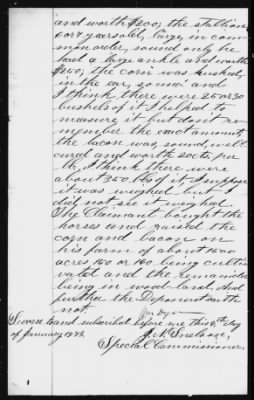 and worth $200, the stallion
6 or 7 years old, large, in com-
mon order, sound only he
had a large ankle and worth
$250, the corn was husked,
in the ear, sound and
I think there were 25 or 30
bushels of it I helped to
measure it but don't re-
member the exact amount,
the bacon was sound, well
cured and worth 20 cts. per
lb, I think there were
about 350 lbs of it I suppose
it was weighed but I
did not see it weighed
The Claimant bought the
horses and raised the
corn and bacon on
his farm of about
acres 150 or 160 being culti-
vated and the remainder
being in wood-land. And
further the Deponent saith
not.
Sworn to and subscribed before me this 8th day
of January 1878.
Special Commissioner